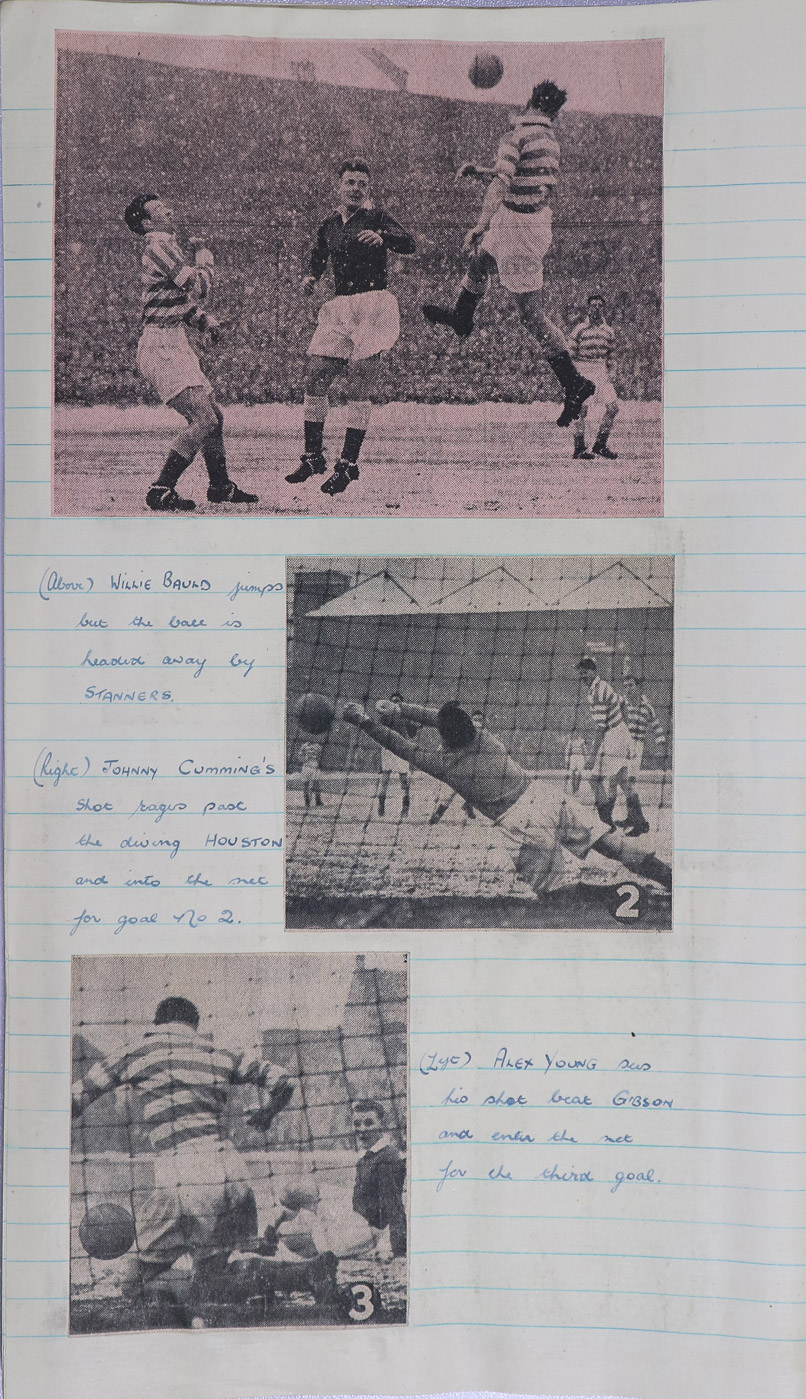 (Above) WILLIE BAULD jumps
but the ball is
headed away by
STANNERS.
2
(Right) JOHNNY CUMMING'S
shot rages past
the diving HOUSTON
and into the net
for goal No 2.
3
(Left) ALEX YOUNG sees
his shot beat GIBSON
and enter the net
for the third goal.